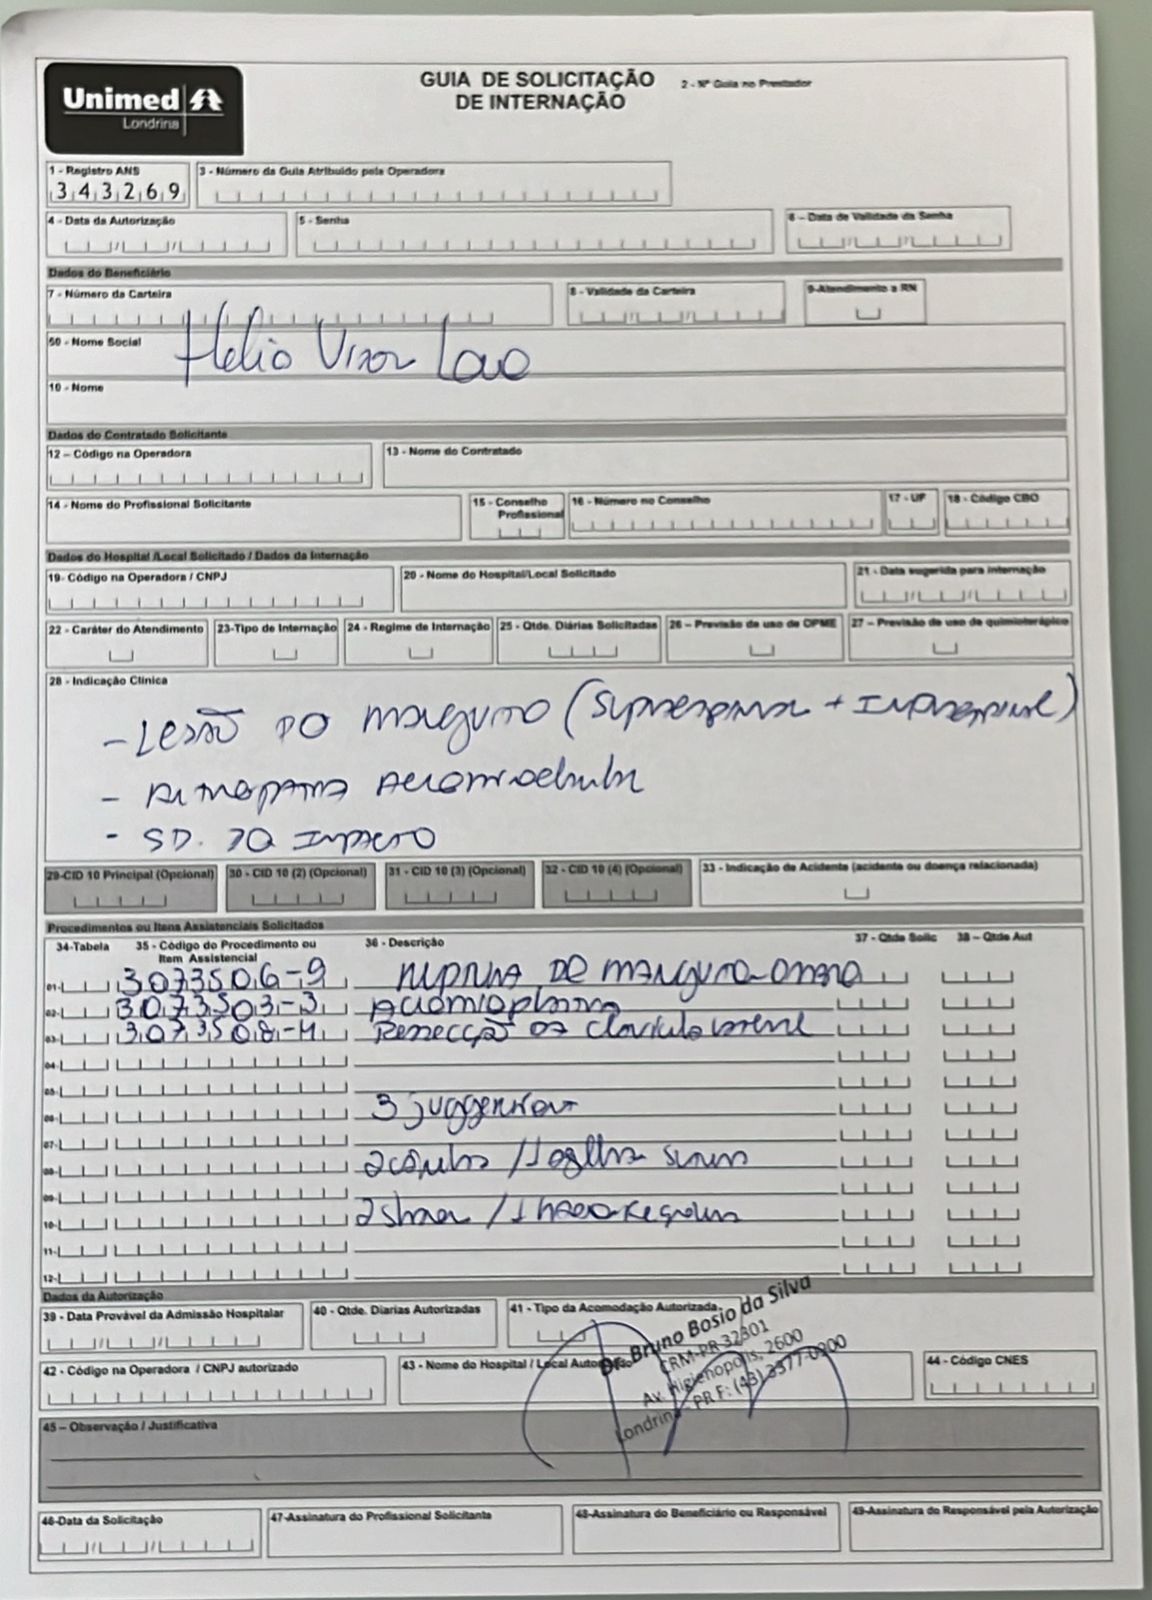 Unimed
Londrina
GUIA DE SOLICITAÇÃO
DE INTERNAÇÃO
2 - Nº Guia no Prestador
1 - Registro ANS
3 4 3 2 6 9
3 - Número da Guia Atribuído pela Operadora
4 - Data da Autorização
5 - Senha
6 – Data de Validade da Senha
Dados do Beneficiário
7 - Número da Carteira
8 - Validade da Carteira
9-Atendimento a RN
50 - Nome Social
Helio
10 - Nome
Dados do Contratado Solicitante
12 – Código na Operadora
13 - Nome do Contratado
14 - Nome do Profissional Solicitante
15 - Conselho
Profissional
16 - Número no Conselho
17 - UF
18 - Código CBO
Dados do Hospital /Local Solicitado / Dados da Internação
19- Código na Operadora / CNPJ
20 - Nome do Hospital/Local Solicitado
21 - Data sugerida para internação
22 - Caráter do Atendimento
23-Tipo de Internação
24 - Regime de Internação
25 - Qtde. Diárias Solicitadas
26 – Previsão de uso de OPME
27 – Previsão de uso de quimioterápico
28 - Indicação Clínica
- LESÃO DO manguito (
-
- SD. DO IMPACTO
29-CID 10 Principal (Opcional)
30 - CID 10 (2) (Opcional)
31 - CID 10 (3) (Opcional)
32 - CID 10 (4) (Opcional)
33 - Indicação de Acidente (acidente ou doença relacionada)
Procedimentos ou Itens Assistenciais Solicitados
34-Tabela
35 - Código do Procedimento ou
Item Assistencial
36 - Descrição
37 - Qtde Solic
38 – Qtde Aut
01- 3073506-9 DE manguito
02- 3073503-3 Acromioplastia
03- 3073508-4 Ressecção
04-
05-
06- 3
07-
08-
09-
10-
11-
12-
Dados da Autorização
39 - Data Provável da Admissão Hospitalar
40 - Qtde. Diarias Autorizadas
41 - Tipo da Acomodação Autorizada
42 - Código na Operadora / CNPJ autorizado
43 - Nome do Hospital / Local Autorizado
44 - Código CNES
Dr. Bruno Bosio da Silva
CRM-PR 32301
Av. Higienopolis, 2600
Londrina - PR F: (43) 3377-0900
45 – Observação / Justificativa
46-Data da Solicitação
47-Assinatura do Profissional Solicitante
48-Assinatura do Beneficiário ou Responsável
49-Assinatura do Responsável pela Autorização